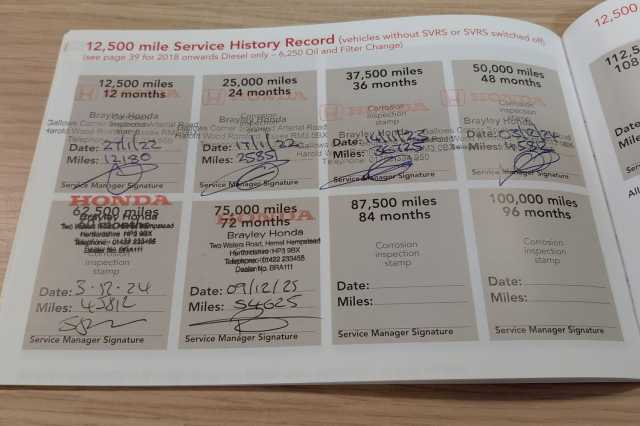 12,500 mile Service History Record (vehicles without SVRS or SVRS switched off)
(see page 39 for 2018 onwards Diesel only – 6,250 Oil and Filter Change)
12,500 miles
12 months
HONDA
Brayley Honda
Miles: 12180
Service Manager Signature
25,000 miles
24 months
HONDA
Brayley Honda
Date: 17/11/22
Miles:
Service Manager Signature
37,500 miles
36 months
HONDA
Corrosion
inspection
stamp
Date:
Miles: 36725
Service Manager Signature
50,000 miles
48 months
HONDA
Corrosion
inspection
stamp
Date:
Miles:
Service Manager Signature
HONDA
62,500 miles
Brayley Honda
Two Waters Road, Hemel Hempstead
Hertfordshire HP3 9BX
Telephone:- 01422 233456
Dealer No. BRA111
Corrosion
inspection
stamp
Date: 3-12-24
Miles: 43812
Service Manager Signature
HONDA
75,000 miles
72 months
Brayley Honda
Two Waters Road, Hemel Hempstead
Hertfordshire HP3 9BX
Telephone:- 01422 233456
Dealer No. BRA111
Date: 09/12/25
Miles: 54625
Service Manager Signature
87,500 miles
84 months
Corrosion
inspection
stamp
Date:
Miles:
Service Manager Signature
100,000 miles
96 months
Corrosion
inspection
stamp
Date:
Miles:
Service Manager Signature
12,500
112,5
108
All